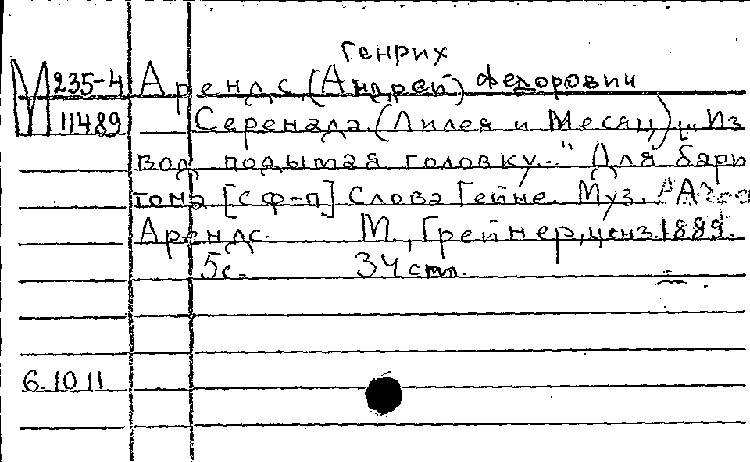 Генрих
М 235-4 Арендс (Андрей) Федорович
11489 Серенада (Лилея и Месяц) „Из
вод подымая головку..." Для бари
тона [с ф-п] Слова Гейне. Муз.
Арендс. М., Грейнер, ценз. 1889.
5с. 34 стл.
6.10 11